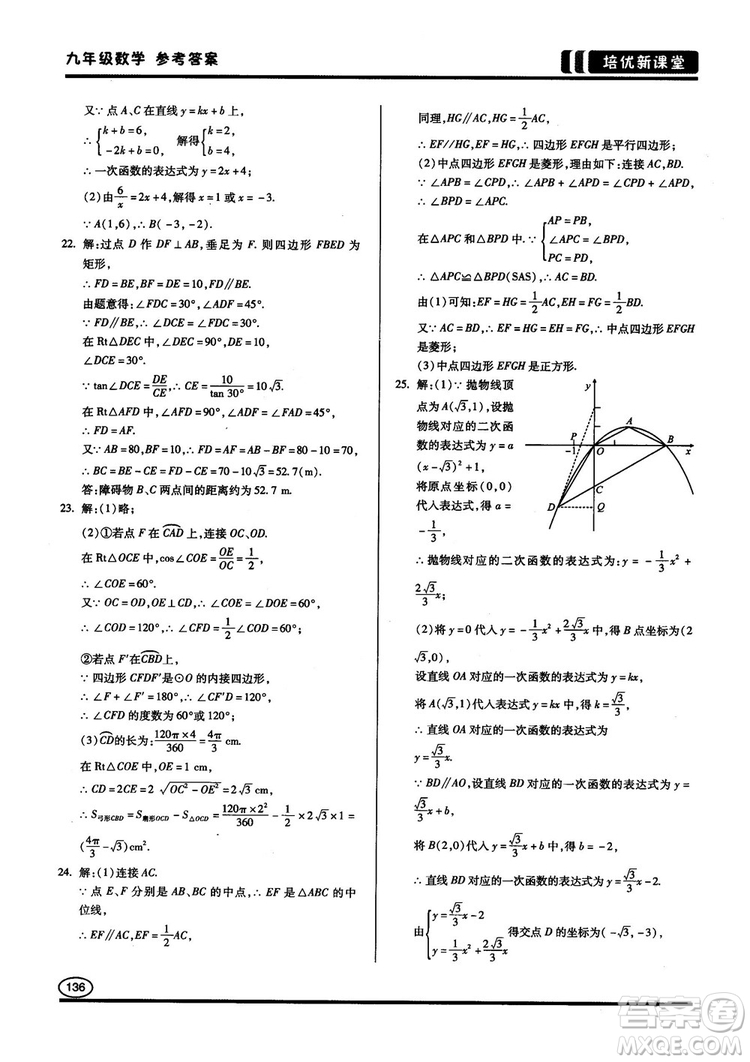 九年级数学 参考答案
培优新课堂
又∵点A、C在直线y=kx+b上,
∴{k+b=6, -2k+b=0, 解得{k=2, b=4,
∴一次函数的表达式为y=2x+4;
(2)由6/x=2x+4,解得x=1或x=-3.
∵A(1,6),∴B(-3,-2).
22. 解:过点D作DF⊥AB,垂足为F.则四边形FBED为
矩形,
∴FD=BE,BF=DE=10,FD∥BE.
由题意得:∠FDC=30°,∠ADF=45°.
∵FD∥BE,∴∠DCE=∠FDC=30°.
在Rt△DEC中,∠DEC=90°,
∠DCE=30°.
∵tan∠DCE=DE/CE,∴CE=10/tan 30°=10√3.
在Rt△AFD中,∠AFD=90°,∠ADF=∠FAD=45°,
∴FD=AF.
又∵AB=80,BF=10,∴FD=AF=AB-BF=80-10=70.
∴BC=BE-CE=FD-CE=70-10√3=52.7(m).
答:障碍物B、C两点间的距离约为52.7 m.
23. 解:(1)略;
(2)①若点F在CAD上,连接OC、OD.
在Rt△OCE中,cos∠COE=OE/OC=1/2,
∴∠COE=60°.
又∵OC=OD,OE⊥CD,∴∠COE=∠DOE=60°,
∴∠COD=120°,∴∠CFD=1/2∠COD=60°;
②若点F'在CBD上.
∵四边形CFDF'是⊙O的内接四边形,
∴∠F+∠F'=180°,∴∠F'=120°,
∴∠CFD的度数为60°或120°;
(3)CD的长为:120π×4/360=4π/3 cm.
在Rt△OCE中,OE=1 cm,
∴CD=2CE=2√(OC²-OE²)=2√3 cm.
∴S弓形CBD=S扇形OCD-S△OCD=120π×2²/360-1/2×2√3×1=
(4π/3-√3)cm².
24. 解:(1)连接AC.
∵点E、F分别是AB、BC的中点,∴EF是△ABC的中
位线,
∴EF∥AC,EF=1/2AC,
同理,HG∥AC,HG=1/2AC,
∴EF//HG,EF=HG,∴四边形EFGH是平行四边形;
(2)中点四边形EFGH是菱形,理由如下:连接AC,BD.
∵∠APB=∠CPD,∴∠APB+∠APD=∠CPD+∠APD,
∴∠APC=∠BPD,
在△APC和△BPD中,∵{AP=PB, ∠APC=∠BPD, PC=PD,
∴△APC≌△BPD(SAS),∴AC=BD,
由(1)可知:EF=HG=1/2AC,EH=FG=1/2BD,
又∵AC=BD,∴EF=HG=EH=FG,∴中点四边形EFGH
是菱形;
(3)中点四边形EFGH是正方形.
25. 解:(1)∵抛物线顶
点为A(√3,1),设抛
物线对应的二次函
数的表达式为y=a
(x-√3)²+1,
将原点坐标(0,0)
代入表达式,得a=
-1/3,
y
A
P
-1
O
B
x
C
D
Q
∴抛物线对应的二次函数的表达式为:y=-1/3x²+
2√3/3x;
(2)将y=0代入y=-1/3x²+2√3/3x中,得B点坐标为(2
√3,0),
设直线OA对应的一次函数的表达式为y=kx,
将A(√3,1)代入表达式y=kx中,得k=√3/3,
∴直线OA对应的一次函数的表达式为
y=√3/3x.
∵BD∥AO,∴设直线BD对应的一次函数的表达式为y=
√3/3x+b,
将B(2,0)代入y=√3/3x+b中,得b=-2,
∴直线BD对应的一次函数的表达式为y=√3/3x-2.
由{y=√3/3x-2 y=1/3x²+2√3/3x 得交点D的坐标为(-√3,-3),
136
答案圈
MXQE.COM